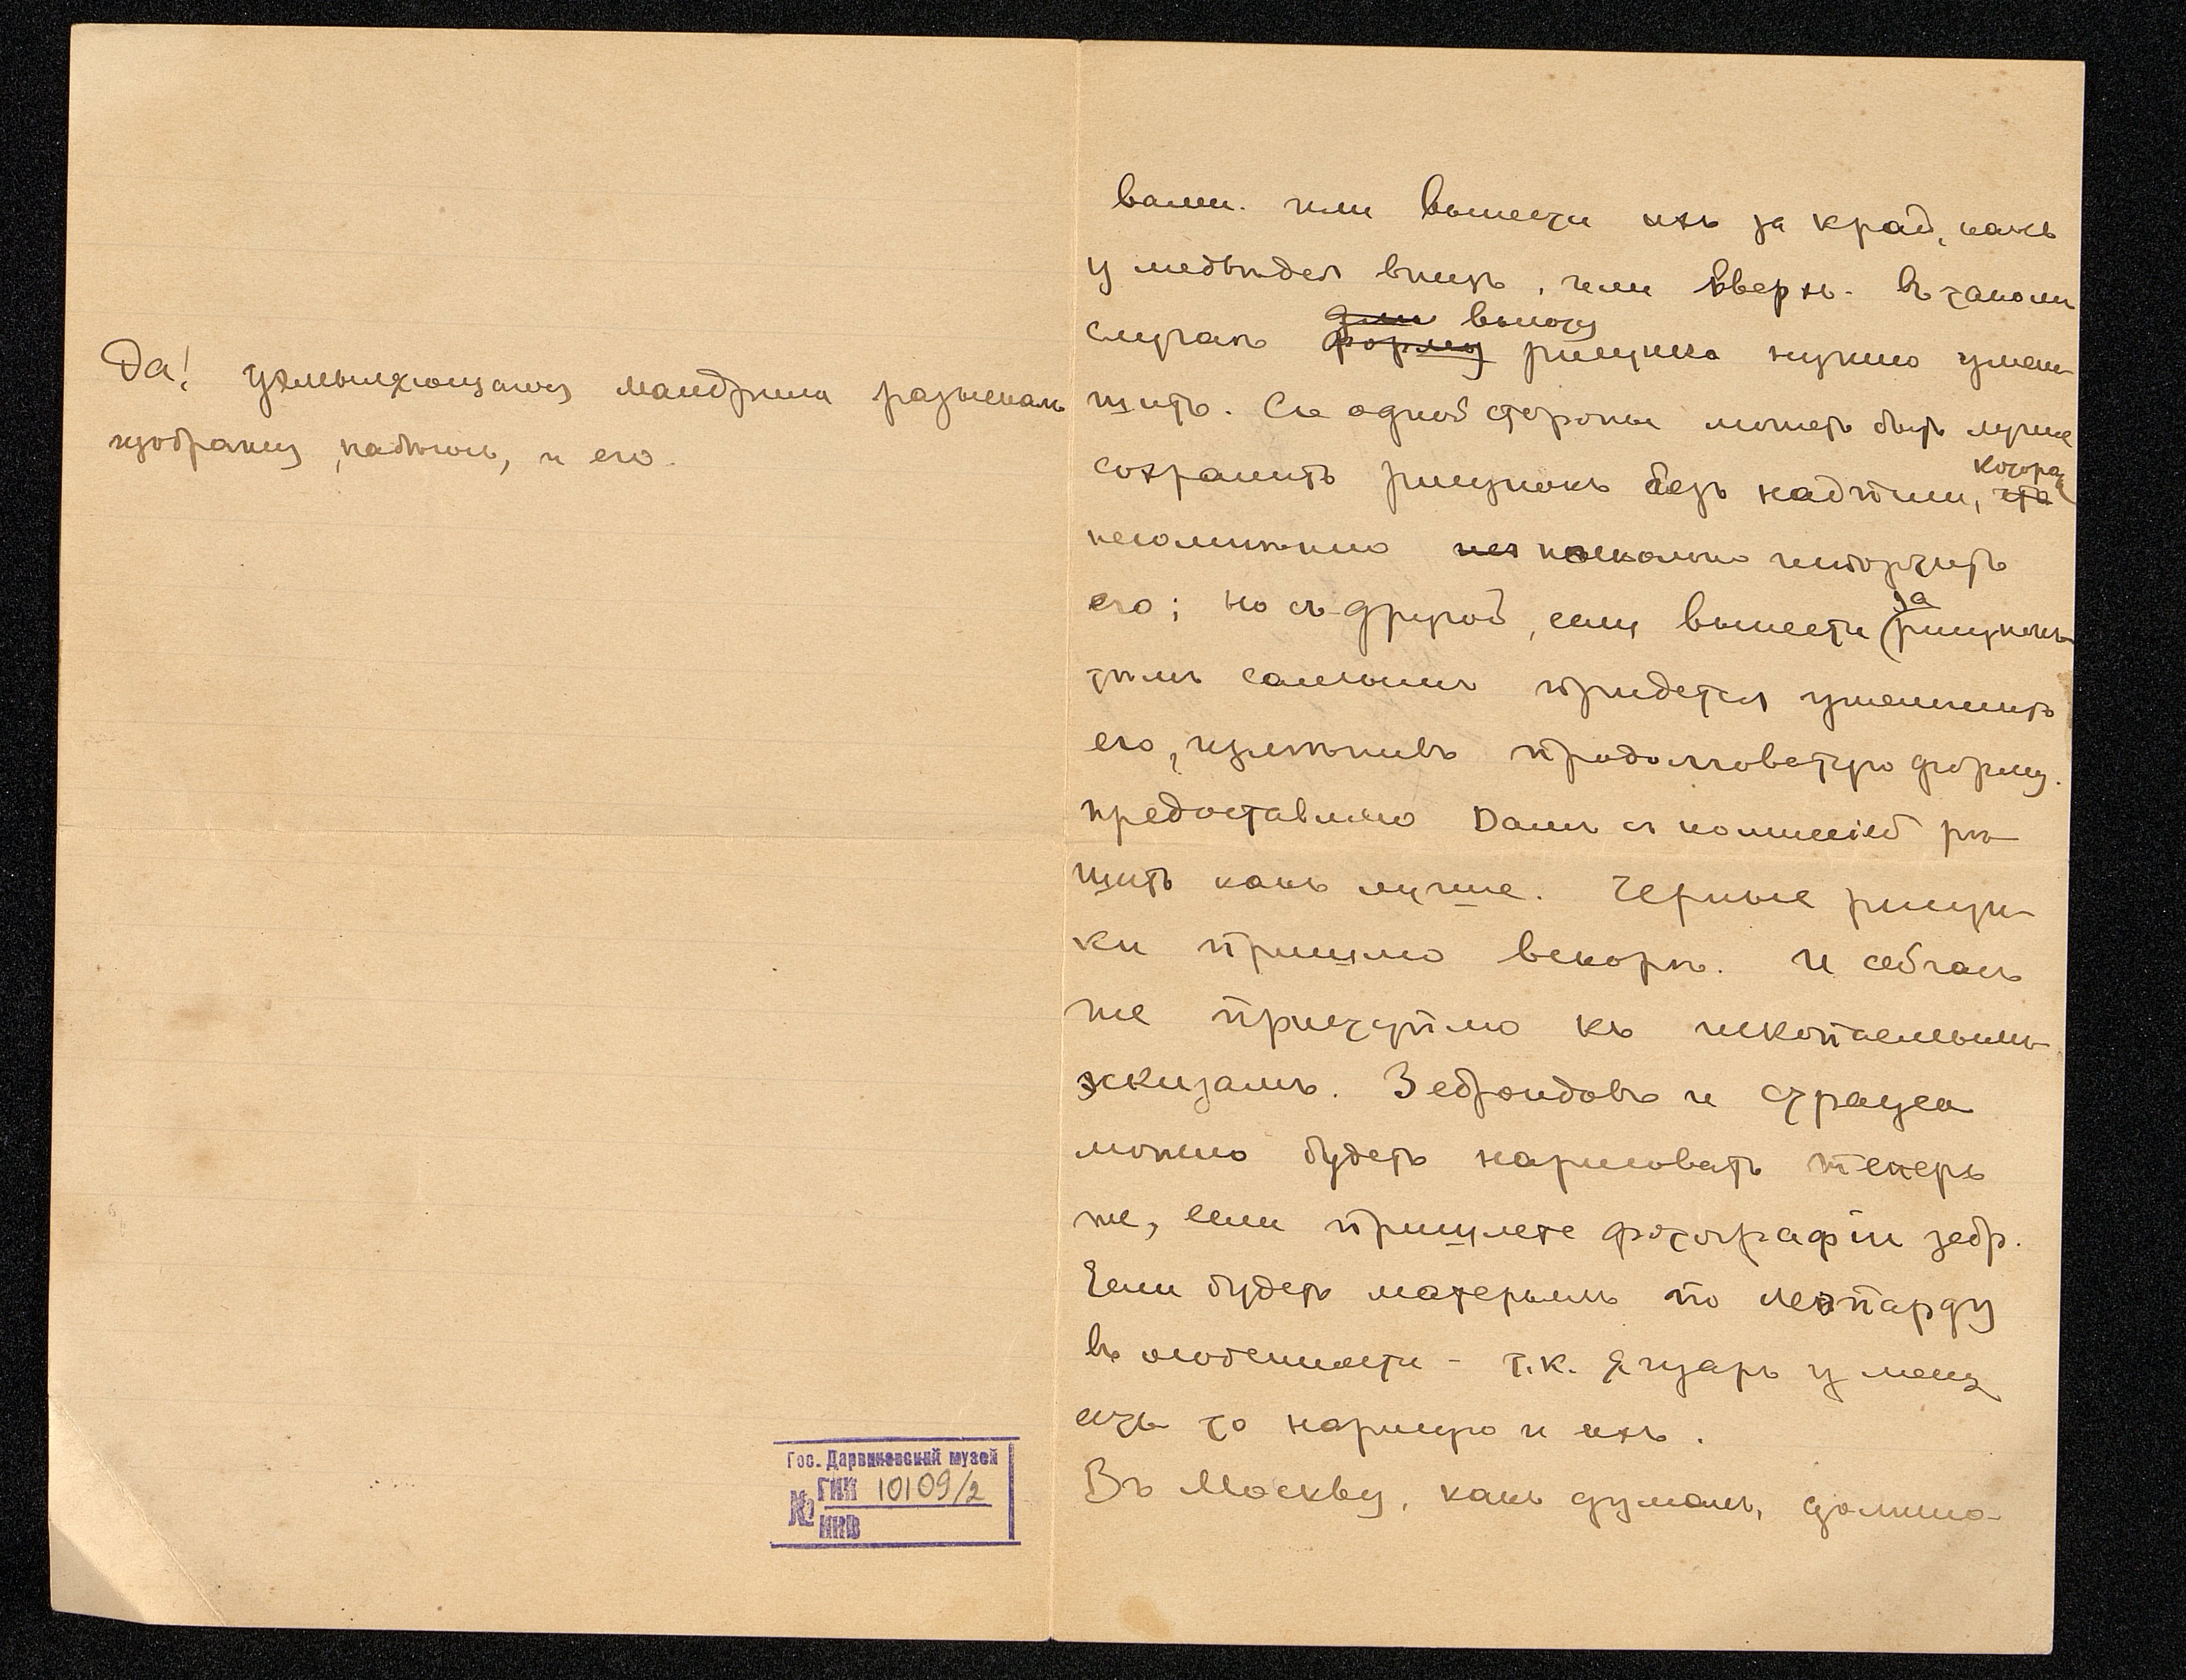 Да! ухмыляющагося мандрила разыскалъ
изображу, надѣюсь, и его.
Гос. Дарвиновский музей
№ ГИК 10109/2
ИНВ
вами. или вынести ихъ за край, какъ
у медвѣдей внизъ, или вверхъ. Въ такомъ
случаѣ форму для высоту рисунка нужно умен-
шить. Съ одной стороны можетъ быть лучше
сохранить рисунокъ безъ надписи, что которая
несомнѣнно нес нѣсколько испортитъ
его; но съ другой, если вынести за рисунокъ
тѣмъ самымъ придется уменшить
его, измѣнивъ продолговатую форму.
предоставляю Вамъ съ комиссіей рѣ-
шить какъ лучше. Черные рисун-
ки пришлю вскорѣ. И сейчасъ
же приступлю къ ископаемымъ
эскизамъ. Зеброидовъ и страуса
можно будетъ нарисовать теперь
же, если пришлете фотографіи зебр.
Если будетъ матерьялъ по леопарду
въ особенности - т.к. Ягуаръ у меня
есть то нарисую и ихъ.
Въ Москву, какъ думалъ, должно